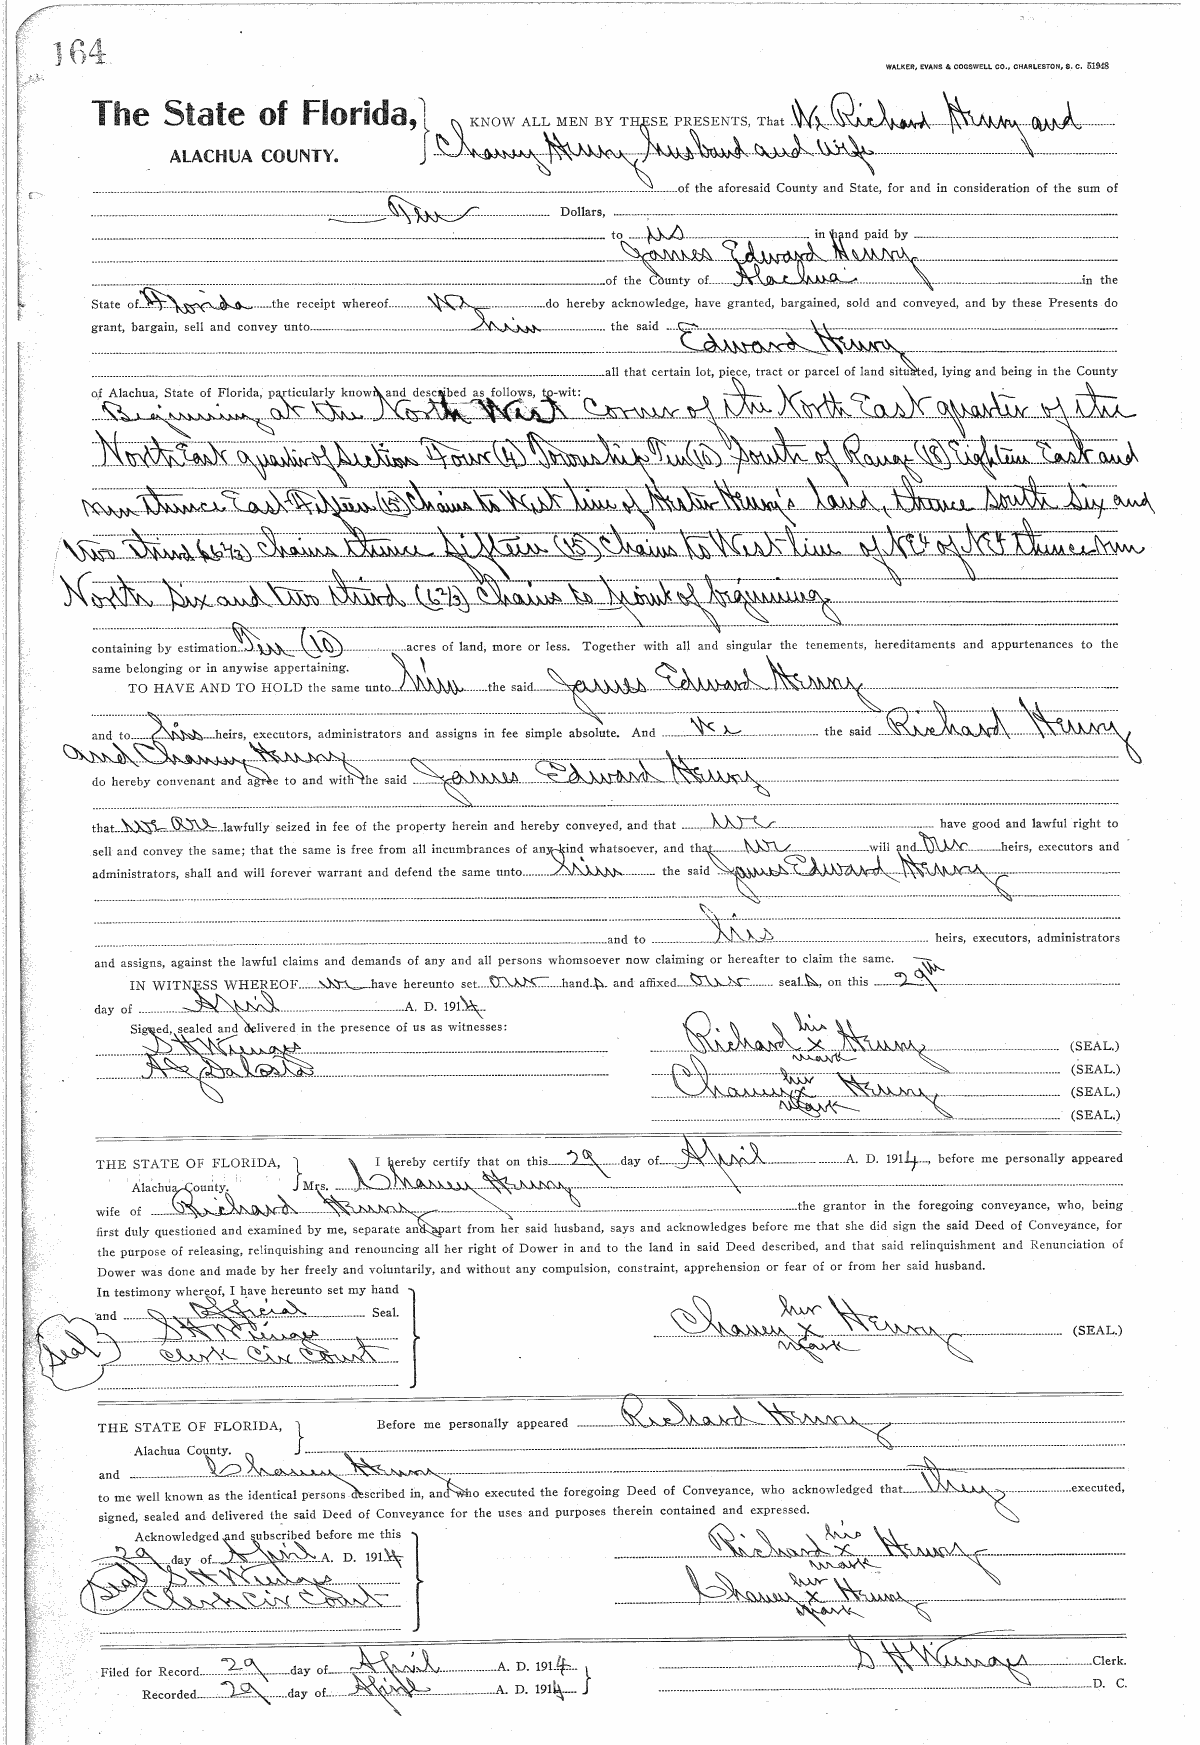 164
WALKER, EVANS & COGSWELL CO., CHARLESTON, S. C. 51948
The State of Florida, KNOW ALL MEN BY THESE PRESENTS, That We Richard Henry and
ALACHUA COUNTY. Chaney Henry husband and wife
of the aforesaid County and State, for and in consideration of the sum of
Ten Dollars,
to us in hand paid by
James Edward Henry
of the County of Alachua in the
State of Florida the receipt whereof we do hereby acknowledge, have granted, bargained, sold and conveyed, and by these Presents do
grant, bargain, sell and convey unto him the said
Edward Henry
all that certain lot, piece, tract or parcel of land situated, lying and being in the County
of Alachua, State of Florida, particularly known and described as follows, to-wit:
Beginning at the North West corner of the North East quarter of the
North East quarter of Section Four (4) Township Ten (10) South of Range (18) Eighteen East and
run thence East Fifteen (15) Chains to West line of Hester Henry's land, thence south Six and
two third (6 2/3) Chains thence fifteen (15) Chains to West line of NE4 of NE4 thence run
North Six and two third (6 2/3) Chains to point of beginning
containing by estimation Ten (10) acres of land, more or less. Together with all and singular the tenements, hereditaments and appurtenances to the
same belonging or in anywise appertaining.
TO HAVE AND TO HOLD the same unto him the said James Edward Henry
and to his heirs, executors, administrators and assigns in fee simple absolute. And we the said Richard Henry
and Chaney Henry
do hereby convenant and agree to and with the said James Edward Henry
that we are lawfully seized in fee of the property herein and hereby conveyed, and that we have good and lawful right to
sell and convey the same; that the same is free from all incumbrances of any kind whatsoever, and that we will and our heirs, executors and
administrators, shall and will forever warrant and defend the same unto him the said James Edward Henry
and to his heirs, executors, administrators
and assigns, against the lawful claims and demands of any and all persons whomsoever now claiming or hereafter to claim the same.
IN WITNESS WHEREOF we have hereunto set our hands and affixed our seals, on this 29th
day of April A. D. 1914
Signed, sealed and delivered in the presence of us as witnesses:
S H Wienges
Richard his x mark Henry (SEAL.)
(SEAL.)
Chaney her x mark Henry (SEAL.)
(SEAL.)
THE STATE OF FLORIDA, I hereby certify that on this 29 day of April A. D. 1914, before me personally appeared
Alachua County. Mrs. Chaney Henry
wife of Richard Henry the grantor in the foregoing conveyance, who, being
first duly questioned and examined by me, separate and apart from her said husband, says and acknowledges before me that she did sign the said Deed of Conveyance, for
the purpose of releasing, relinquishing and renouncing all her right of Dower in and to the land in said Deed described, and that said relinquishment and Renunciation of
Dower was done and made by her freely and voluntarily, and without any compulsion, constraint, apprehension or fear of or from her said husband.
In testimony whereof, I have hereunto set my hand
and official Seal.
Seal S H Wienges
Clerk Cir Court
Chaney her x mark Henry (SEAL.)
THE STATE OF FLORIDA, Before me personally appeared Richard Henry
Alachua County.
and Chaney Henry
to me well known as the identical persons described in, and who executed the foregoing Deed of Conveyance, who acknowledged that they executed,
signed, sealed and delivered the said Deed of Conveyance for the uses and purposes therein contained and expressed.
Acknowledged and subscribed before me this
29 day of April A. D. 1914
Seal S H Wienges
Clerk Cir Court
Richard his x mark Henry
Chaney her x mark Henry
Filed for Record 29 day of April A. D. 1914 S H Wienges Clerk.
Recorded 29 day of April A. D. 1914 D. C.